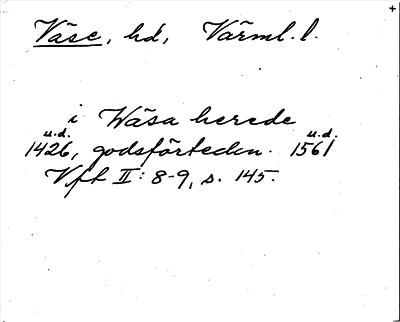 +
Väse, hd, Värml. l.
i Wäsa herede
u.d. u.d.
1426, godsförteckn. 1561
Vft II: 8-9, s. 145.